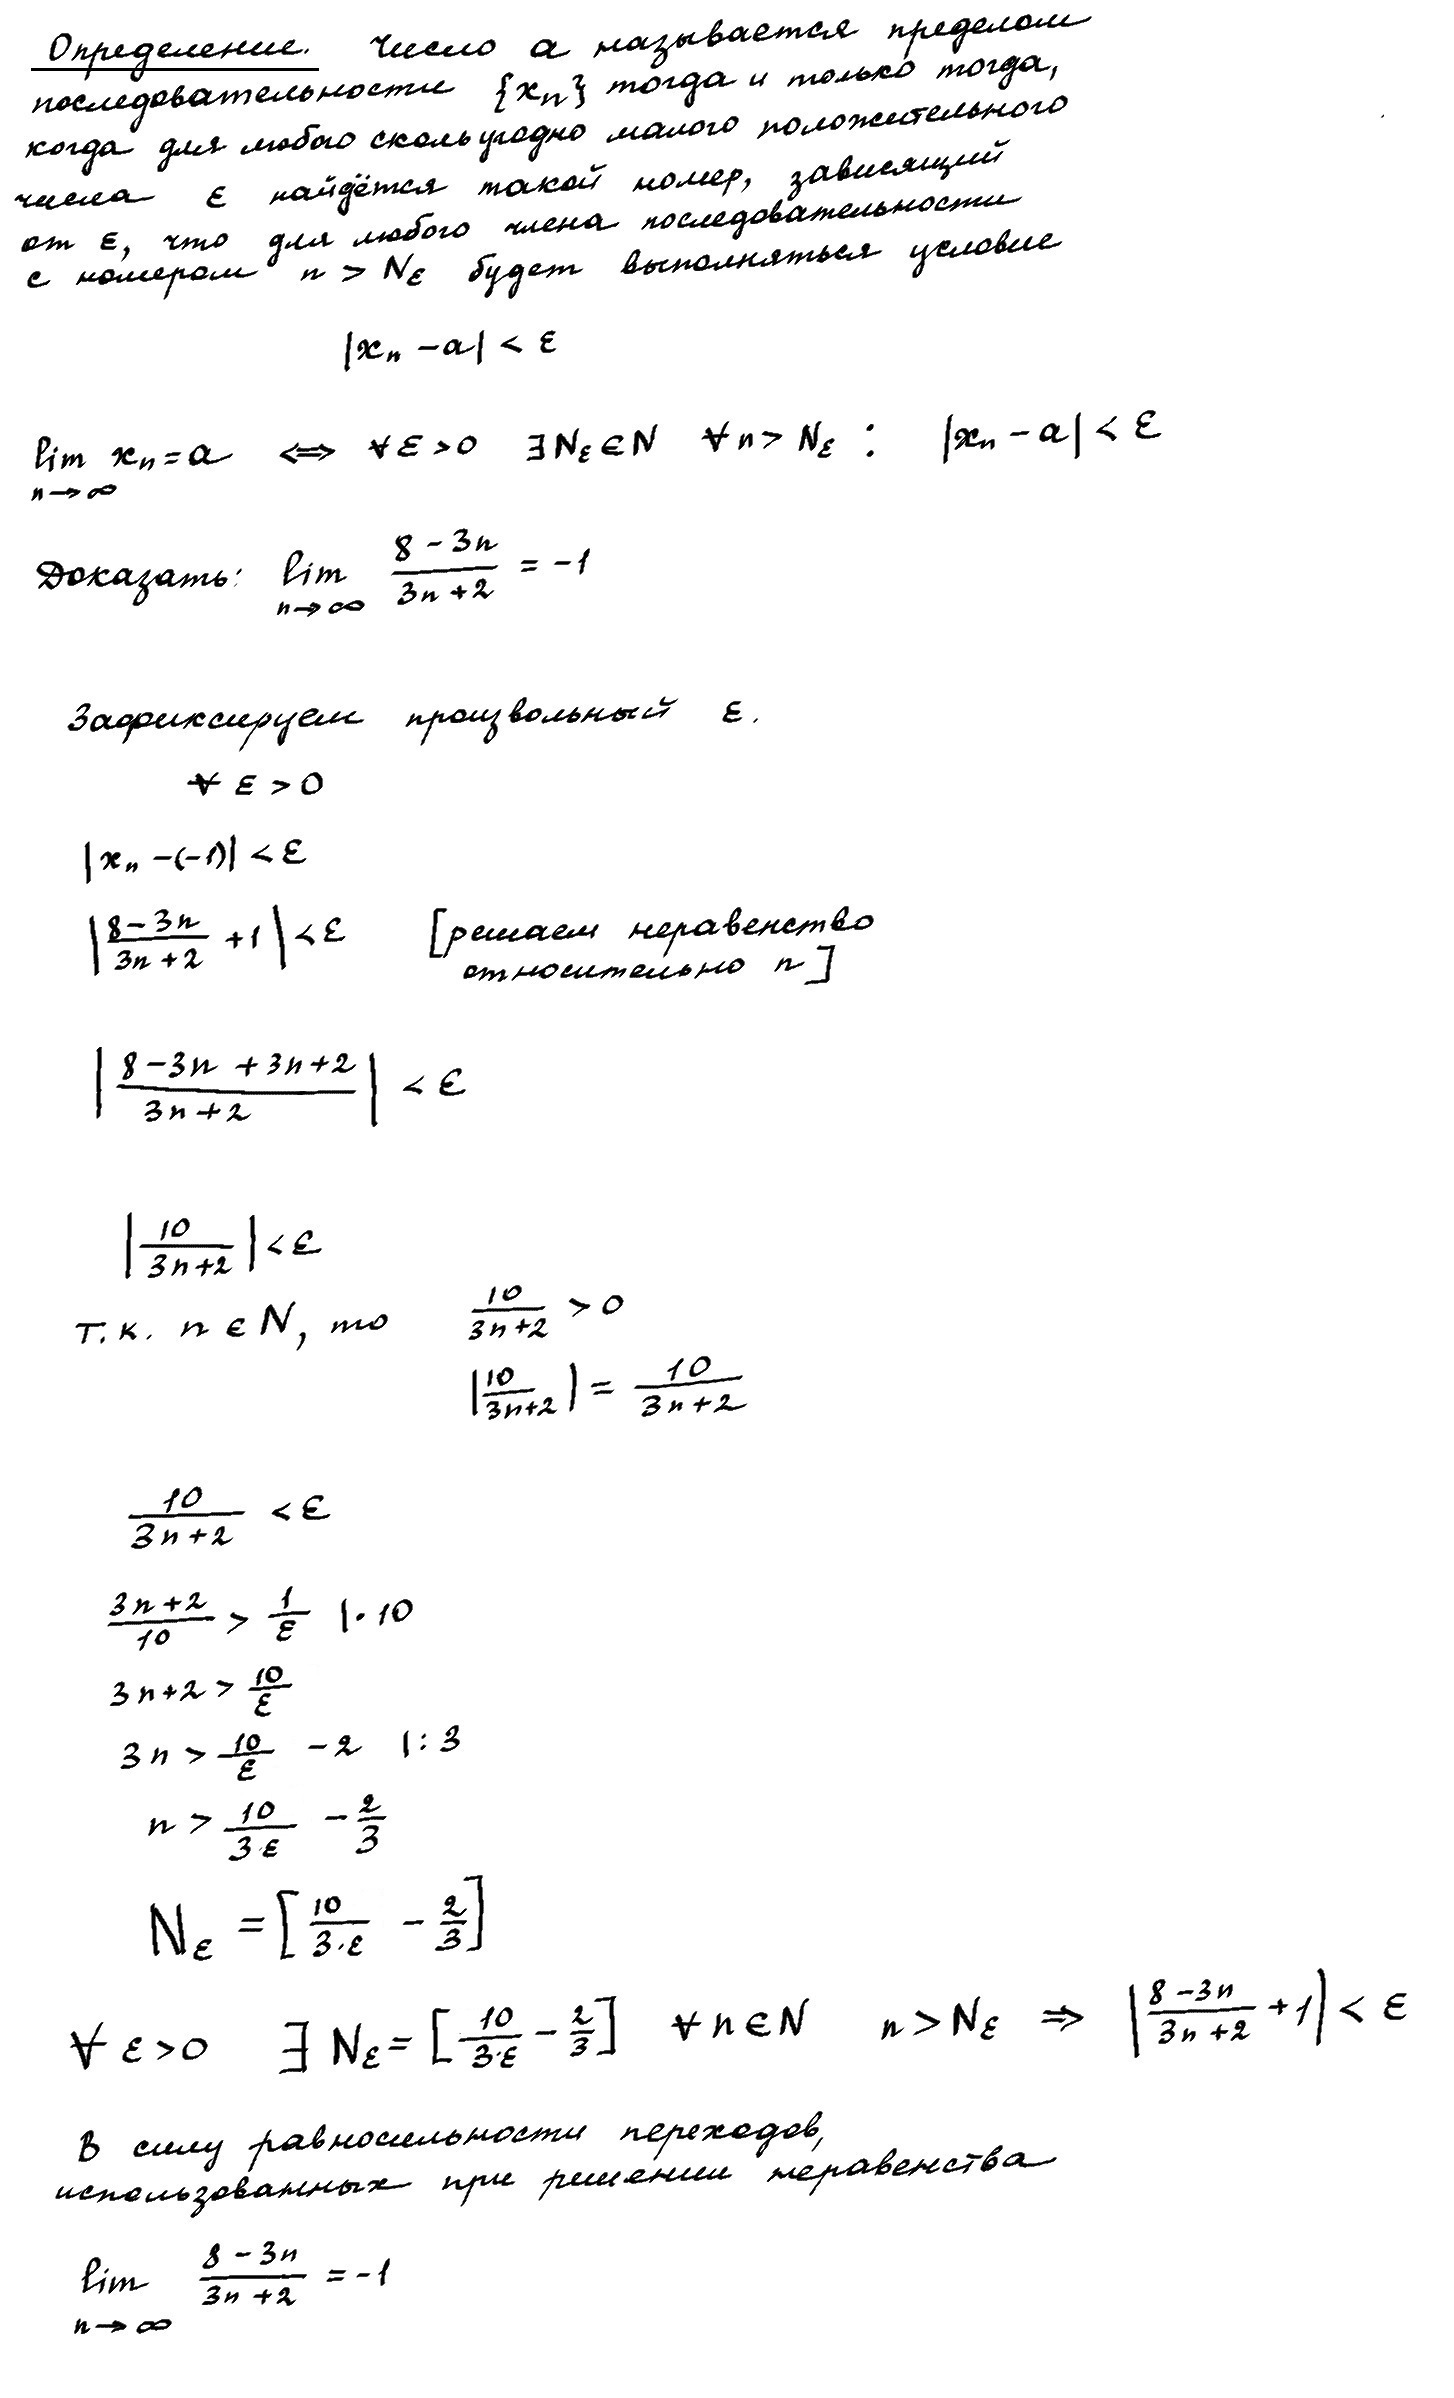 Определение. Число a называется пределом
последовательности {xₙ} тогда и только тогда,
когда для любого сколь угодно малого положительного
числа ε найдётся такой номер, зависящий
от ε, что для любого члена последовательности
с номером n > N_ε будет выполняться условие
|xₙ - a| < ε
lim xₙ = a ⇔ ∀ ε > 0 ∃ N_ε ∈ N ∀ n > N_ε : |xₙ - a| < ε
n→∞
Доказать: lim (8 - 3n)/(3n + 2) = -1
n→∞
Зафиксируем произвольный ε.
∀ ε > 0
|xₙ - (-1)| < ε
|(8 - 3n)/(3n + 2) + 1| < ε [решаем неравенство
относительно n]
|(8 - 3n + 3n + 2)/(3n + 2)| < ε
|10/(3n+2)| < ε
т.к. n ∈ N, то 10/(3n+2) > 0
|10/(3n+2)| = 10/(3n+2)
10/(3n+2) < ε
(3n+2)/10 > 1/ε |·10
3n+2 > 10/ε
3n > 10/ε - 2 |:3
n > 10/(3·ε) - 2/3
N_ε = [10/(3·ε) - 2/3]
∀ ε > 0 ∃ N_ε = [10/(3·ε) - 2/3] ∀ n ∈ N n > N_ε ⇒ |(8 - 3n)/(3n + 2) + 1| < ε
В силу равносильности переходов,
использованных при решении неравенства
lim (8 - 3n)/(3n + 2) = -1
n→∞